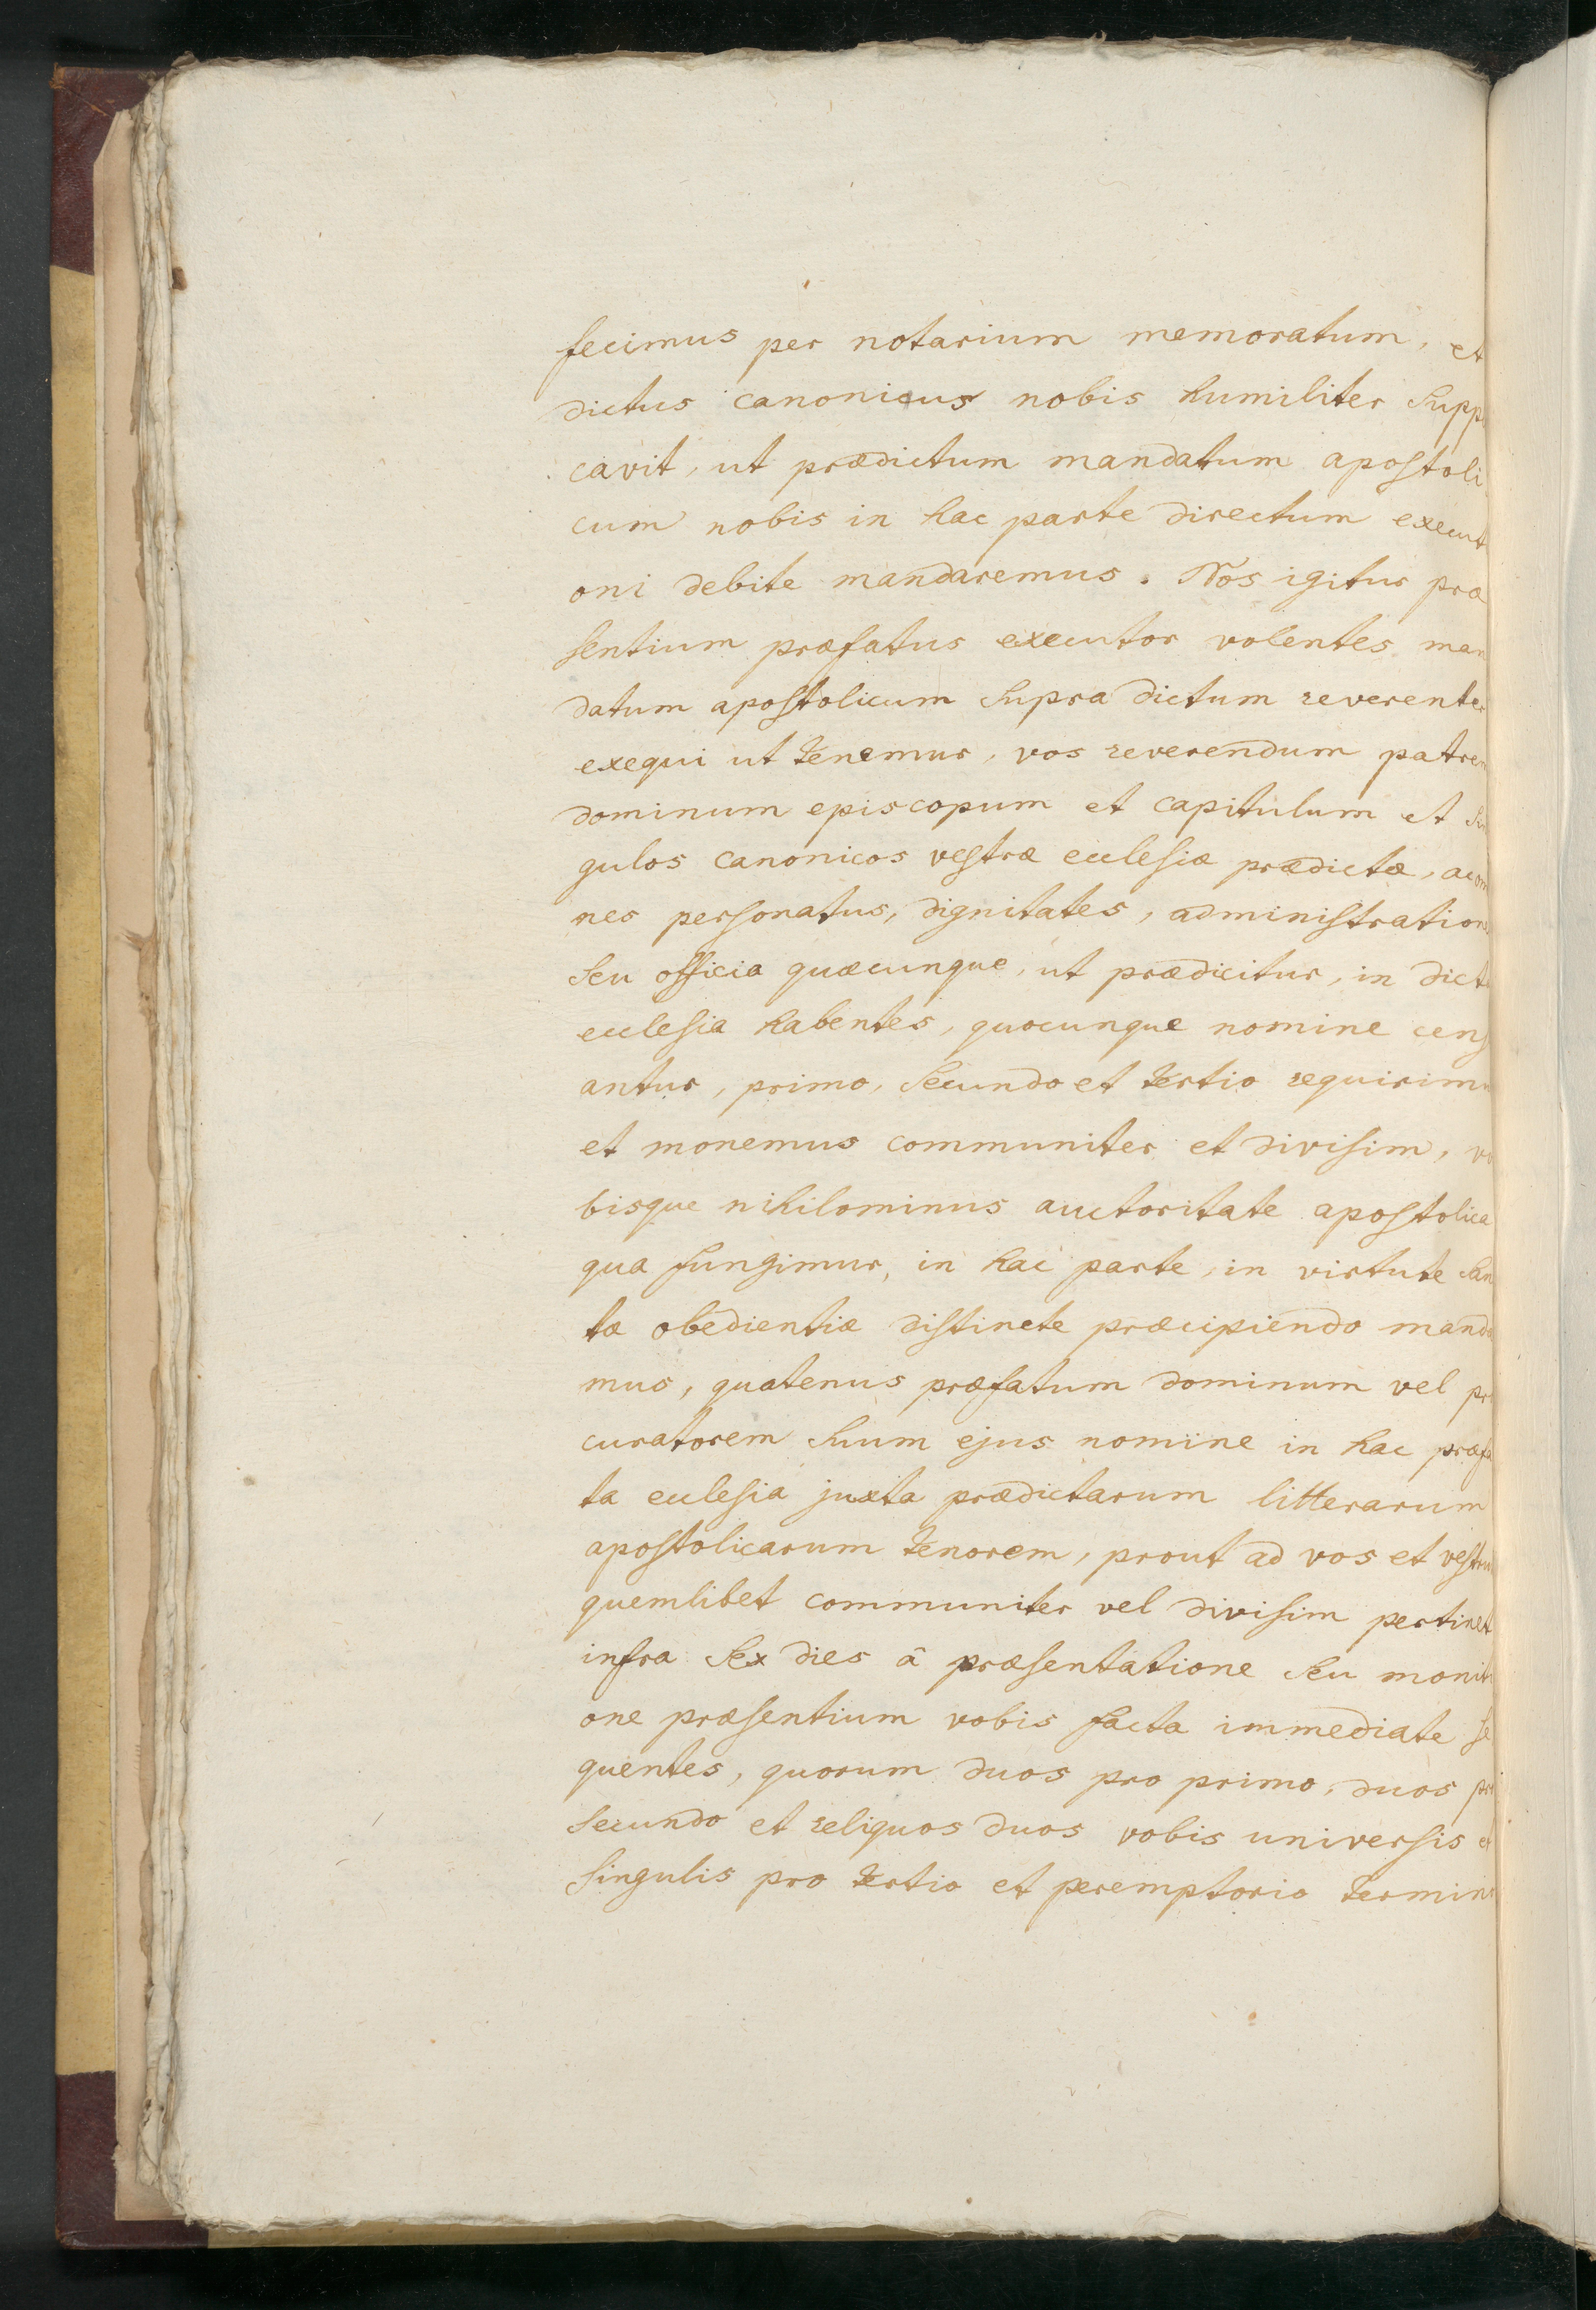 fecimus per notarium memoratum, et
dictus canonicus nobis humiliter supp
cavit, ut prædictum mandatum apostoli
cum nobis in hac parte directum execut
oni debite mandaremus. Nos igitur præ
sentium præfatus executor volentes man
datum apostolicum supra dictum reverenter
exequi ut tenemur, vos reverendum patrem
dominum episcopum et capitulum et sin
gulos canonicos vestræ ecclesiæ prædictæ, ac om
nes personatus, dignitates, administration
seu officia quæcunque, ut prædicitur, in dict
ecclesia habentes, quocunque nomine cens
antur, primo, secundo et tertio requirim
et monemus communiter et divisim, vo
bisque nihilominus auctoritate apostolica
qua fungimur, in hac parte, in virtute san
tæ obedientiæ distincte præcipiendo manda
mus, quatenus præfatum dominum vel pr
curatorem suum ejus nomiine in hac præfa
ta ecclesia juxta prædictarum litterarum
apostolicarum tenorem, prout ad vos et vestru
quemlibet communiter vel divisim pertinet
infra sex dies â præsentatione seu monit
one præsentium vobis facta immediate se
quentes, quorum duos pro primo, duos pr
secundo et reliquos duos vobis universis et
singulis pro tertio et peremptorio termin